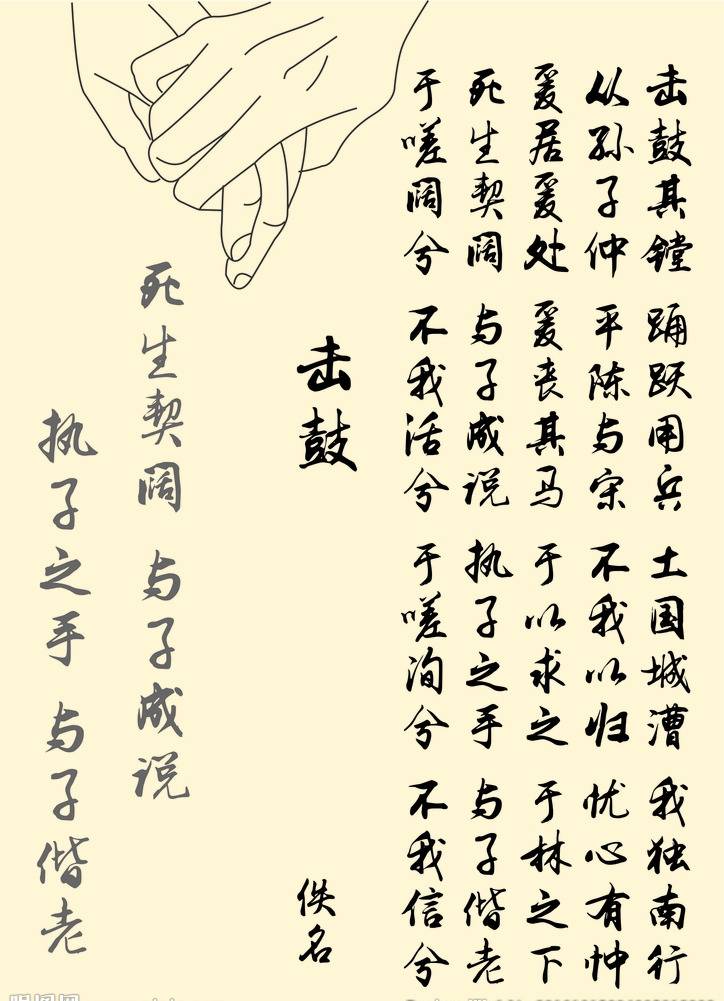 击鼓其镗 踊跃用兵 土国城漕 我独南行
从孙子仲 平陈与宋 不我以归 忧心有忡
爰居爰处 爰丧其马 于以求之 于林之下
死生契阔 与子成说 执子之手 与子偕老
于嗟阔兮 不我活兮 于嗟洵兮 不我信兮
击鼓
佚名
死生契阔 与子成说
执子之手 与子偕老